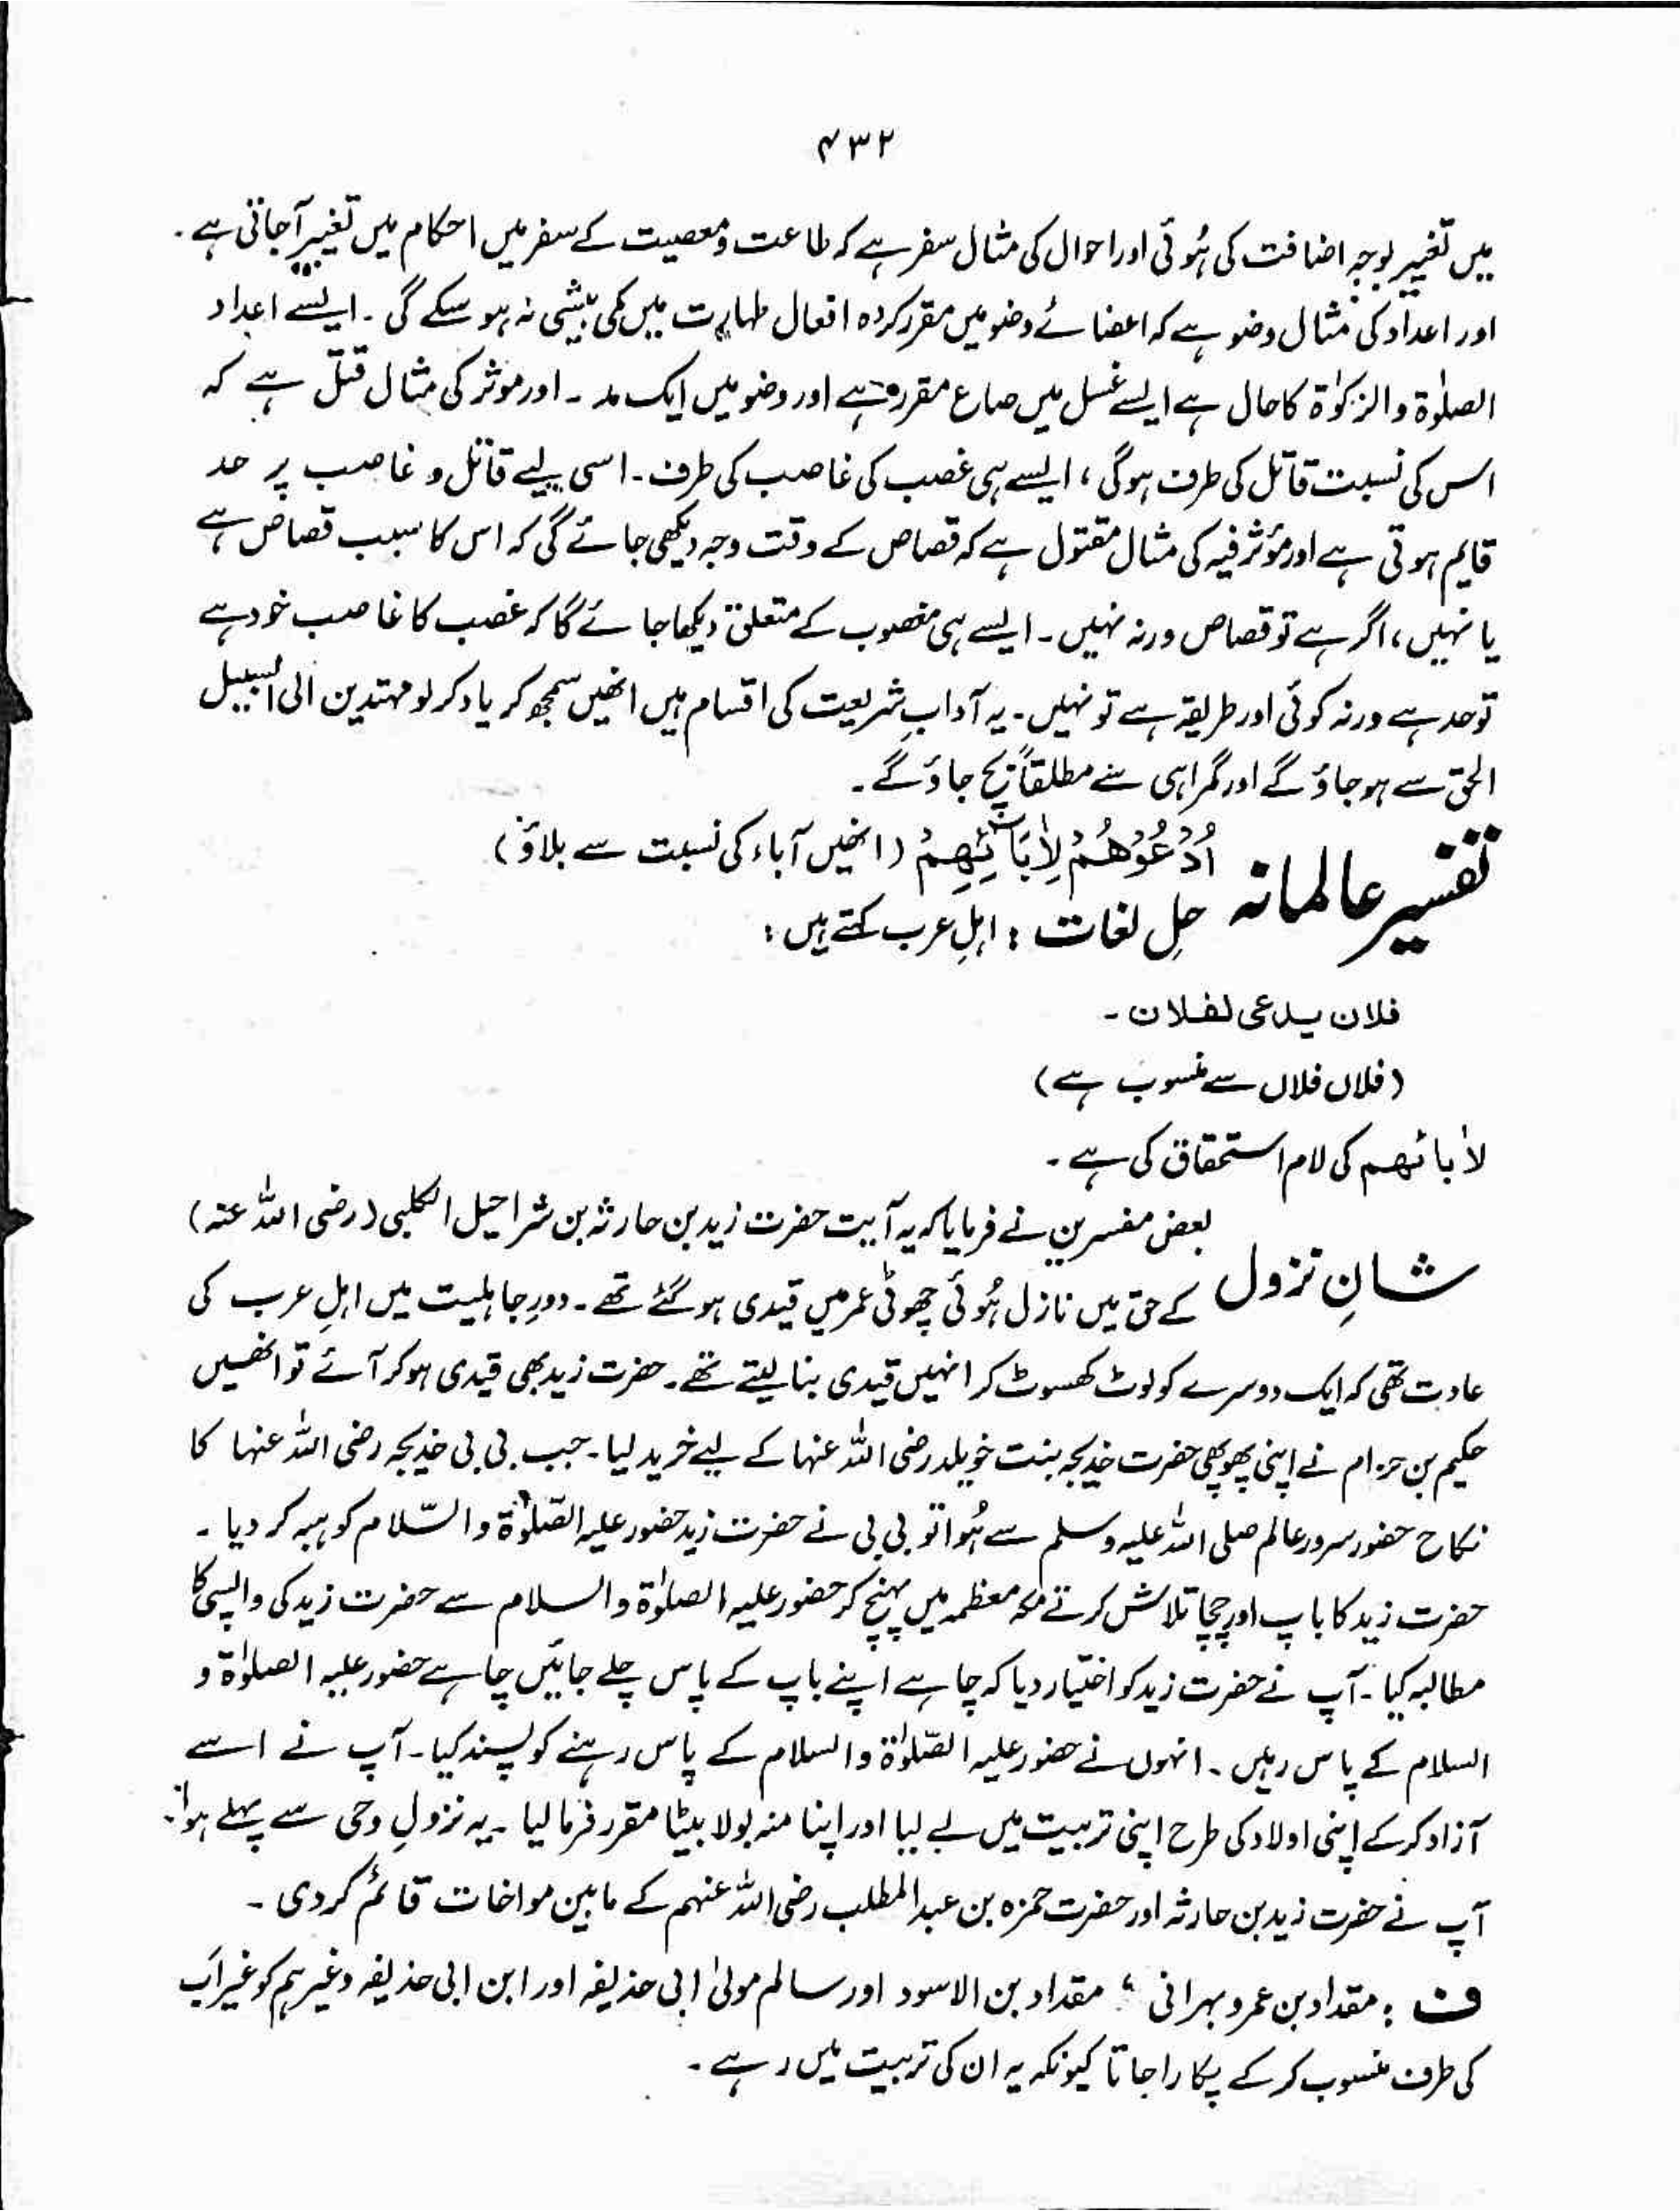 ۴۳۲
میں تغییر بوجہ اضافت کی ہُوئی اور احوال کی مثال سفر ہے کہ طاعت و معصیت کے سفر میں احکام میں تغییر آجاتی ہے۔
اور اعداد کی مثال وضو ہے کہ اعضائے وضو میں مقرر کردہ افعال طہارت میں کمی بیشی نہ ہو سکے گی۔ ایسے اعداد
الصلوٰۃ والزکوٰۃ کا حال ہے ایسے غسل میں صاع مقرر ہے اور وضو میں ایک مد۔ اور موثر کی مثال قتل ہے کہ
اس کی نسبت قاتل کی طرف ہوگی، ایسے ہی غصب کی غاصب کی طرف۔ اسی لیے قاتل و غاصب پر حد
قایم ہوتی ہے اور مؤثر فیہ کی مثال مقتول ہے کہ قصاص کے وقت وجہ دیکھی جائے گی کہ اس کا سبب قصاص ہے
یا نہیں، اگر ہے تو قصاص ورنہ نہیں۔ ایسے ہی مغصوب کے متعلق دیکھا جائے گا کہ غصب کا غاصب خود ہے
تو حد ہے ورنہ کوئی اور طریقہ ہے تو نہیں۔ یہ آدابِ شریعت کی اقسام ہیں انھیں سمجھ کر یاد کر لو مہتدین الی السبیل
الحق سے ہو جاؤ گے اور گمراہی سے مطلقاً بچ جاؤ گے۔
تفسیر عالمانہ اُدْعُوْهُمْ لِاٰبَآئِهِمْ (انھیں آباء کی نسبت سے بلاؤ)
حلِ لغات : اہلِ عرب کہتے ہیں :
فلان یدعی لفلان۔
(فلاں فلاں سے منسوب ہے)
لاٰبائهم کی لام استحقاق کی ہے۔
شانِ نزول بعض مفسرین نے فرمایا کہ یہ آیت حضرت زید بن حارثہ بن شراحیل الکلبی (رضی اللہ عنہ)
کے حق میں نازل ہُوئی چھوٹی عمر میں قیدی ہو گئے تھے۔ دورِ جاہلیت میں اہلِ عرب کی
عادت تھی کہ ایک دوسرے کو لوٹ کھسوٹ کر انہیں قیدی بنا لیتے تھے۔ حضرت زید بھی قیدی ہو کر آئے تو انھیں
حکیم بن حزام نے اپنی پھوپھی حضرت خدیجہ بنت خویلد رضی اللہ عنہا کے لیے خرید لیا۔ جب بی بی خدیجہ رضی اللہ عنہا کا
نکاح حضور سرورِ عالم صلی اللہ علیہ وسلم سے ہُوا تو بی بی نے حضرت زید حضور علیہ الصّلوٰۃ والسّلام کو ہبہ کر دیا۔
حضرت زید کا باپ اور چچا تلاش کرتے مکہ معظمہ میں پہنچ کر حضور علیہ الصلوٰۃ والسلام سے حضرت زید کی واپسی کا
مطالبہ کیا۔ آپ نے حضرت زید کو اختیار دیا کہ چاہے اپنے باپ کے پاس چلے جائیں چاہے حضور علیہ الصلوٰۃ و
السلام کے پاس رہیں۔ انہوں نے حضور علیہ الصّلوٰۃ والسلام کے پاس رہنے کو پسند کیا۔ آپ نے اسے
آزاد کر کے اپنی اولاد کی طرح اپنی تربیت میں لے لیا اور اپنا منہ بولا بیٹا مقرر فرما لیا۔ یہ نزولِ وحی سے پہلے ہوا۔
آپ نے حضرت زید بن حارثہ اور حضرت حمزہ بن عبدالمطلب رضی اللہ عنہم کے مابین مواخات قائم کر دی۔
ف : مقداد بن عمرو بہرانی، مقداد بن الاسود اور سالم مولیٰ ابی حذیفہ اور ابن ابی حذیفہ وغیرہم کو غیر اَب
کی طرف منسوب کر کے پکارا جاتا کیونکہ یہ ان کی تربیت میں رہے۔